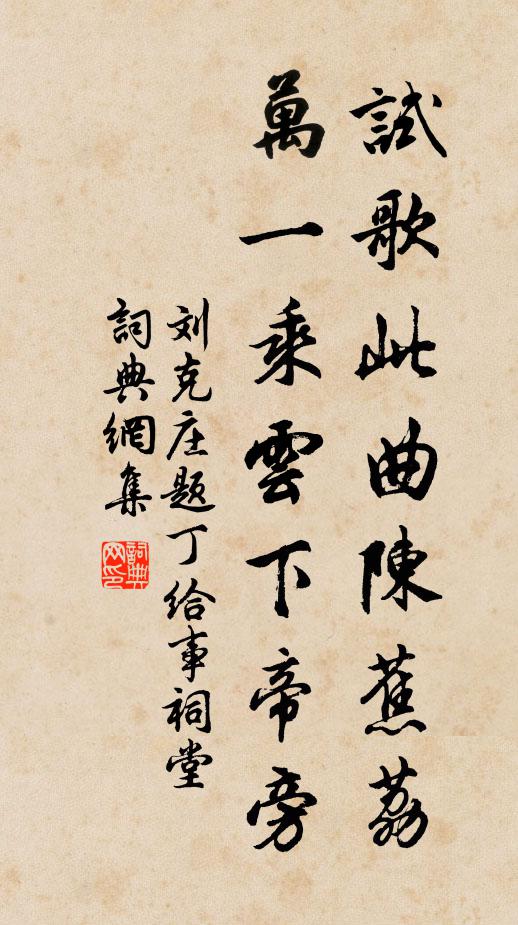 試歌此曲陳蕉荔
萬一乘雲下帝旁
刘克庄题丁给事祠堂
詞典網集
詞典网印